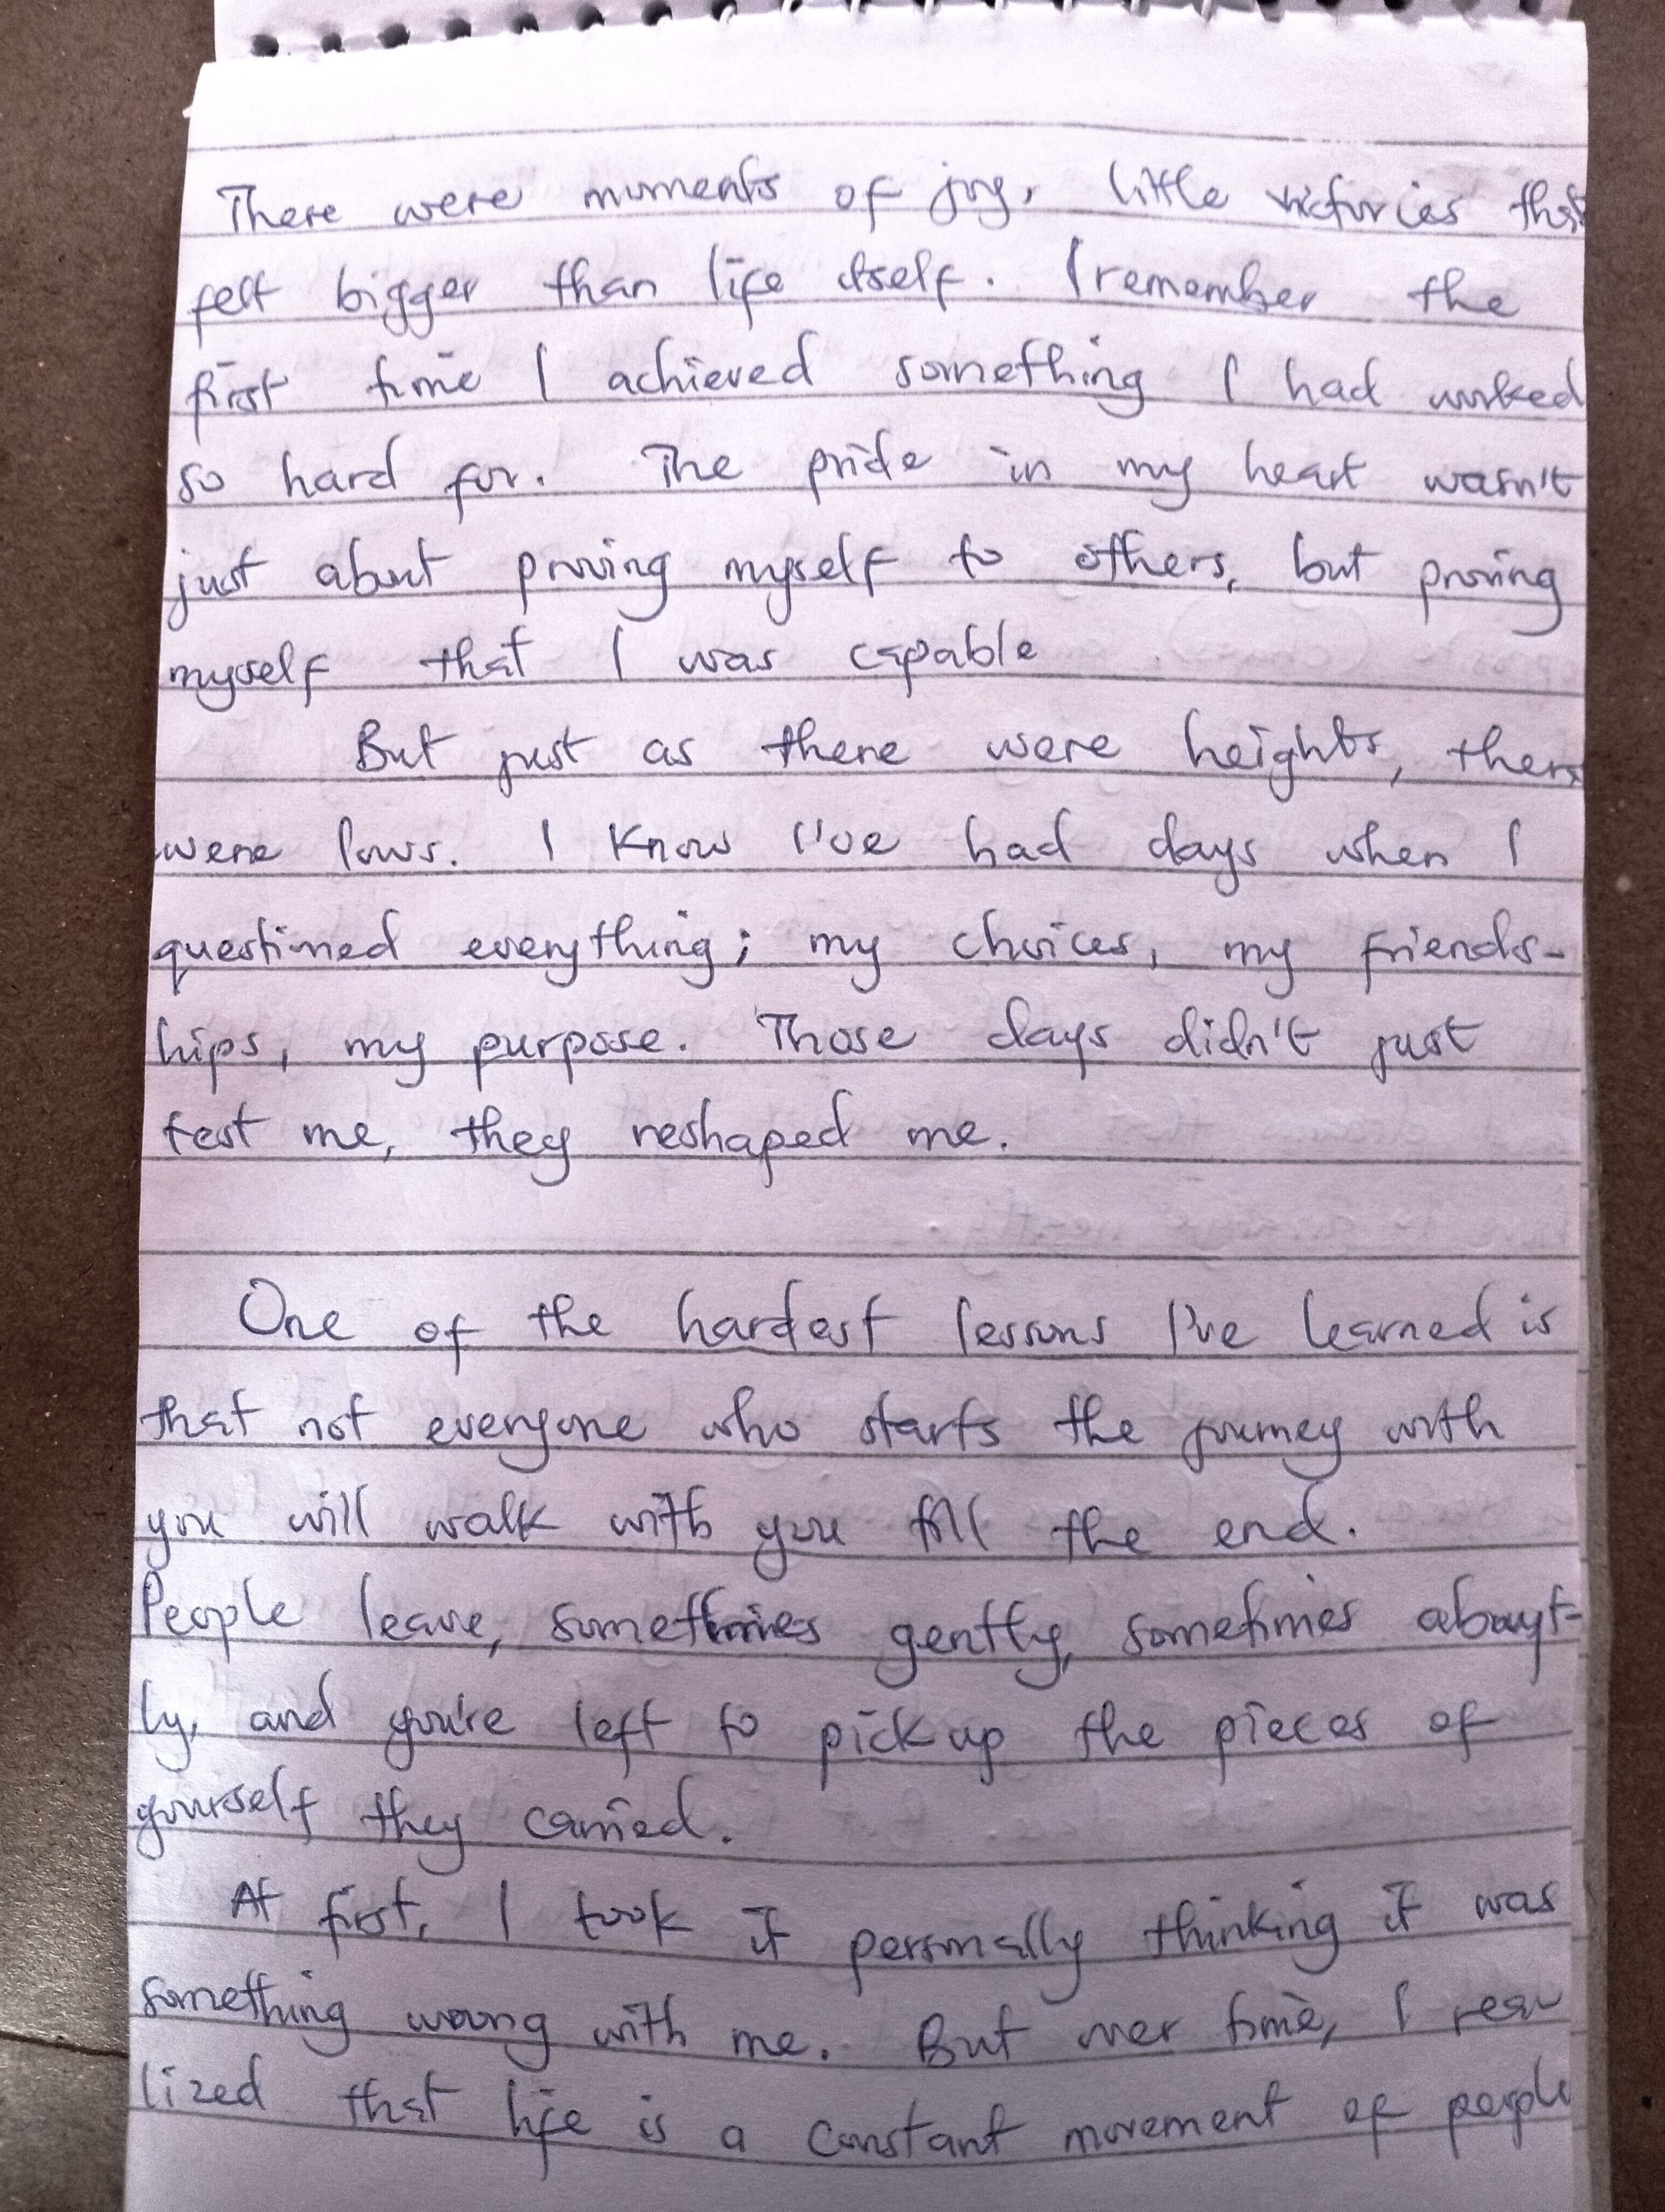 There were moments of joy, little victories that
felt bigger than life itself. I remember the
first time I achieved something I had worked
so hard for. The pride in my heart wasn't
just about proving myself to others, but proving
myself that I was capable
But just as there were heights, there
were lows. I know I've had days when I
questioned everything; my choices, my friends-
hips, my purpose. Those days didn't just
test me, they reshaped me.
One of the hardest lessons I've learned is
that not everyone who starts the journey with
you will walk with you till the end.
People leave, sometimes gently, sometimes
ly, and you're left to pick up the pieces of
yourself they carried.
At first, I took it personally thinking it was
something wrong with me. But over time, I rea
lized that life is a constant movement of people